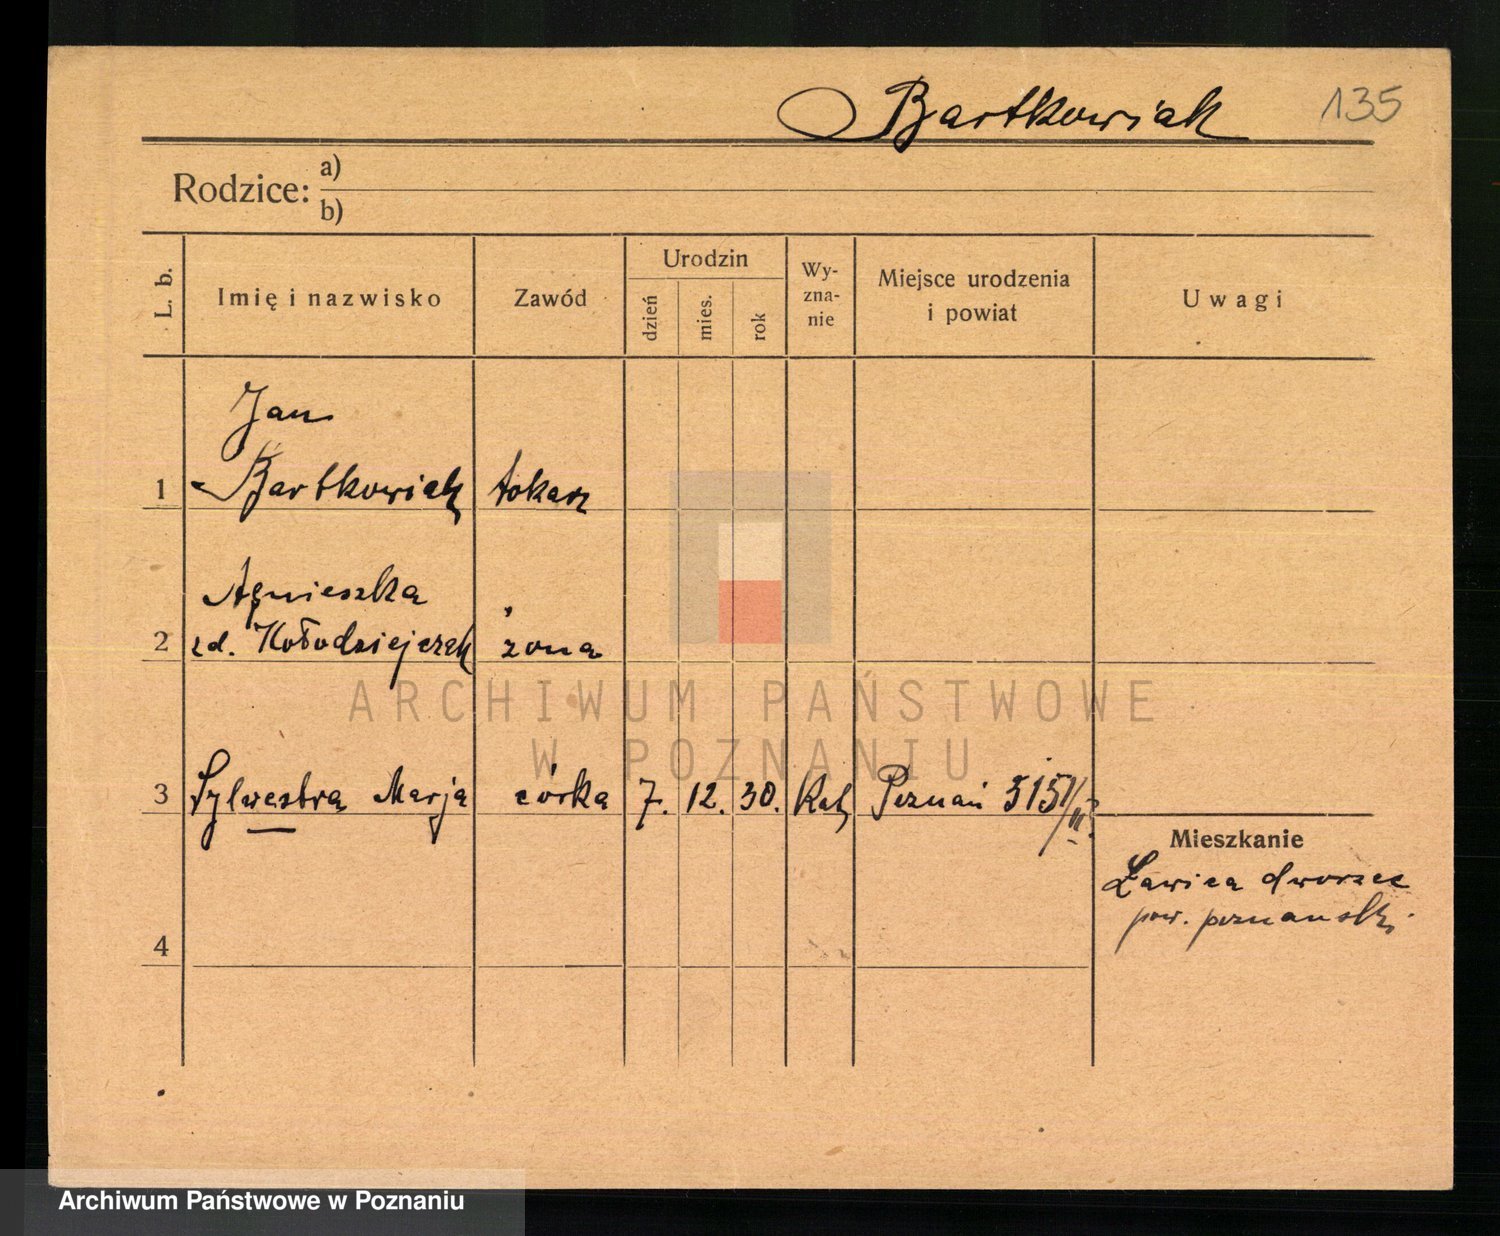 Bartkowiak 135
Rodzice: a)
b)
L. b.
Imię i nazwisko
Zawód
Urodzin
dzień
mies.
rok
Wy-
zna-
nie
Miejsce urodzenia
i powiat
Uwagi
Jan
1 Bartkowiak tokarz
Agnieszka
2 zd. Kołodziejczak żona
ARCHIWUM PAŃSTWOWE
W POZNANIU
3 Sylwestra Marja córka 7. 12. 30. Kat Poznań 3151/II
Mieszkanie
Ławica dworzec
pow. poznański
4
Archiwum Państwowe w Poznaniu